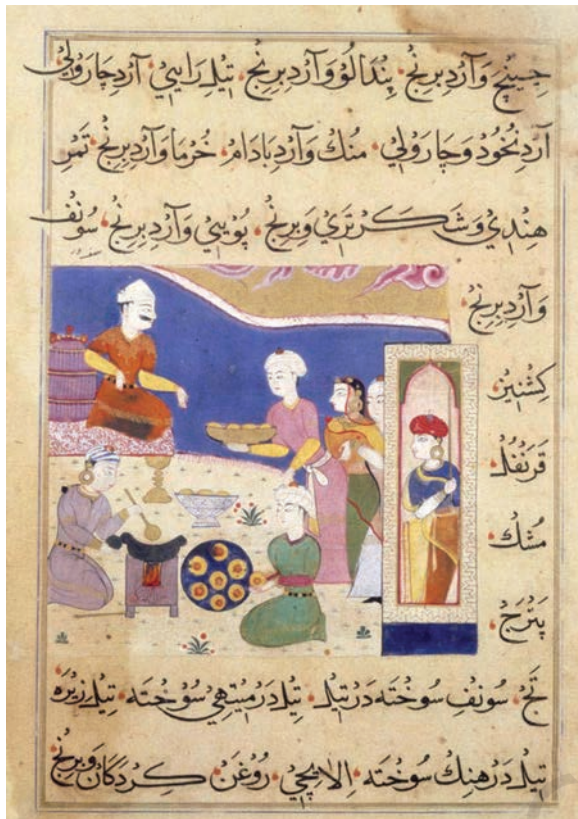 جینج وآرد برنج، پندالو وآرد برنج، تیل رایي، آرد چارولي
آرد نخود و چارولي، منك وآرد بادام، خرما وآرد برنج، تمر
هندي و شکر تري و برنج، پویي وآرد برنج، سونف
وآرد برنج،
کشنیز
قرنفل
مشك
پترج،
تج، سونف سوخته در تیل، تیل در میتهي سوخته، تیل زیره
تیل در هنك سوخته، الایچي، روغن کردکان و برنج